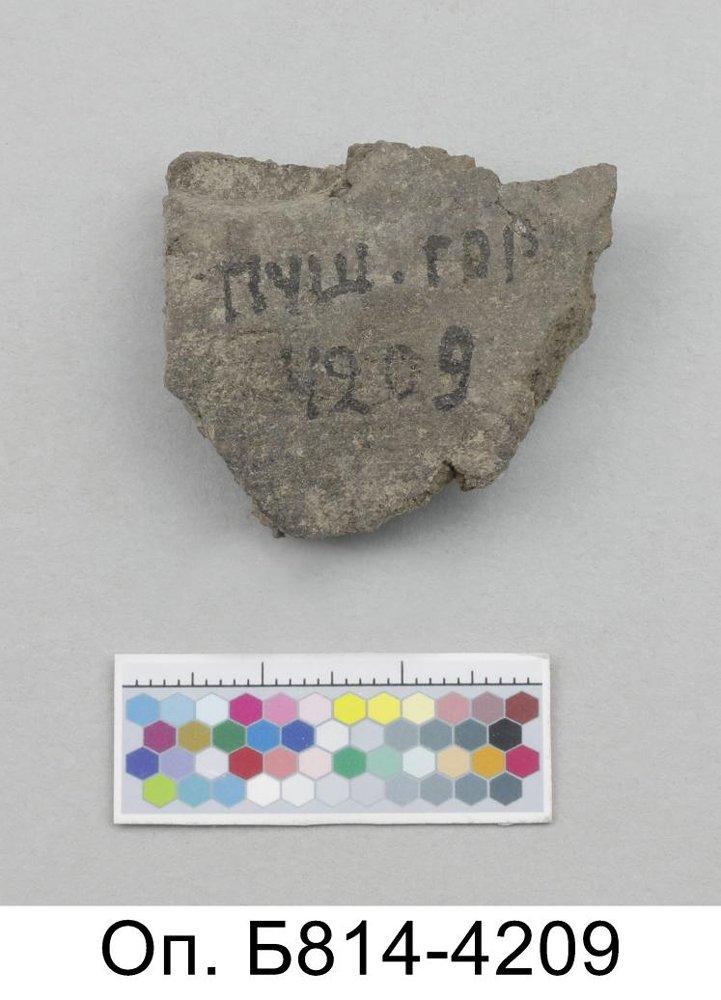 ПУШ. ГОР
4209
Оп. Б814-4209